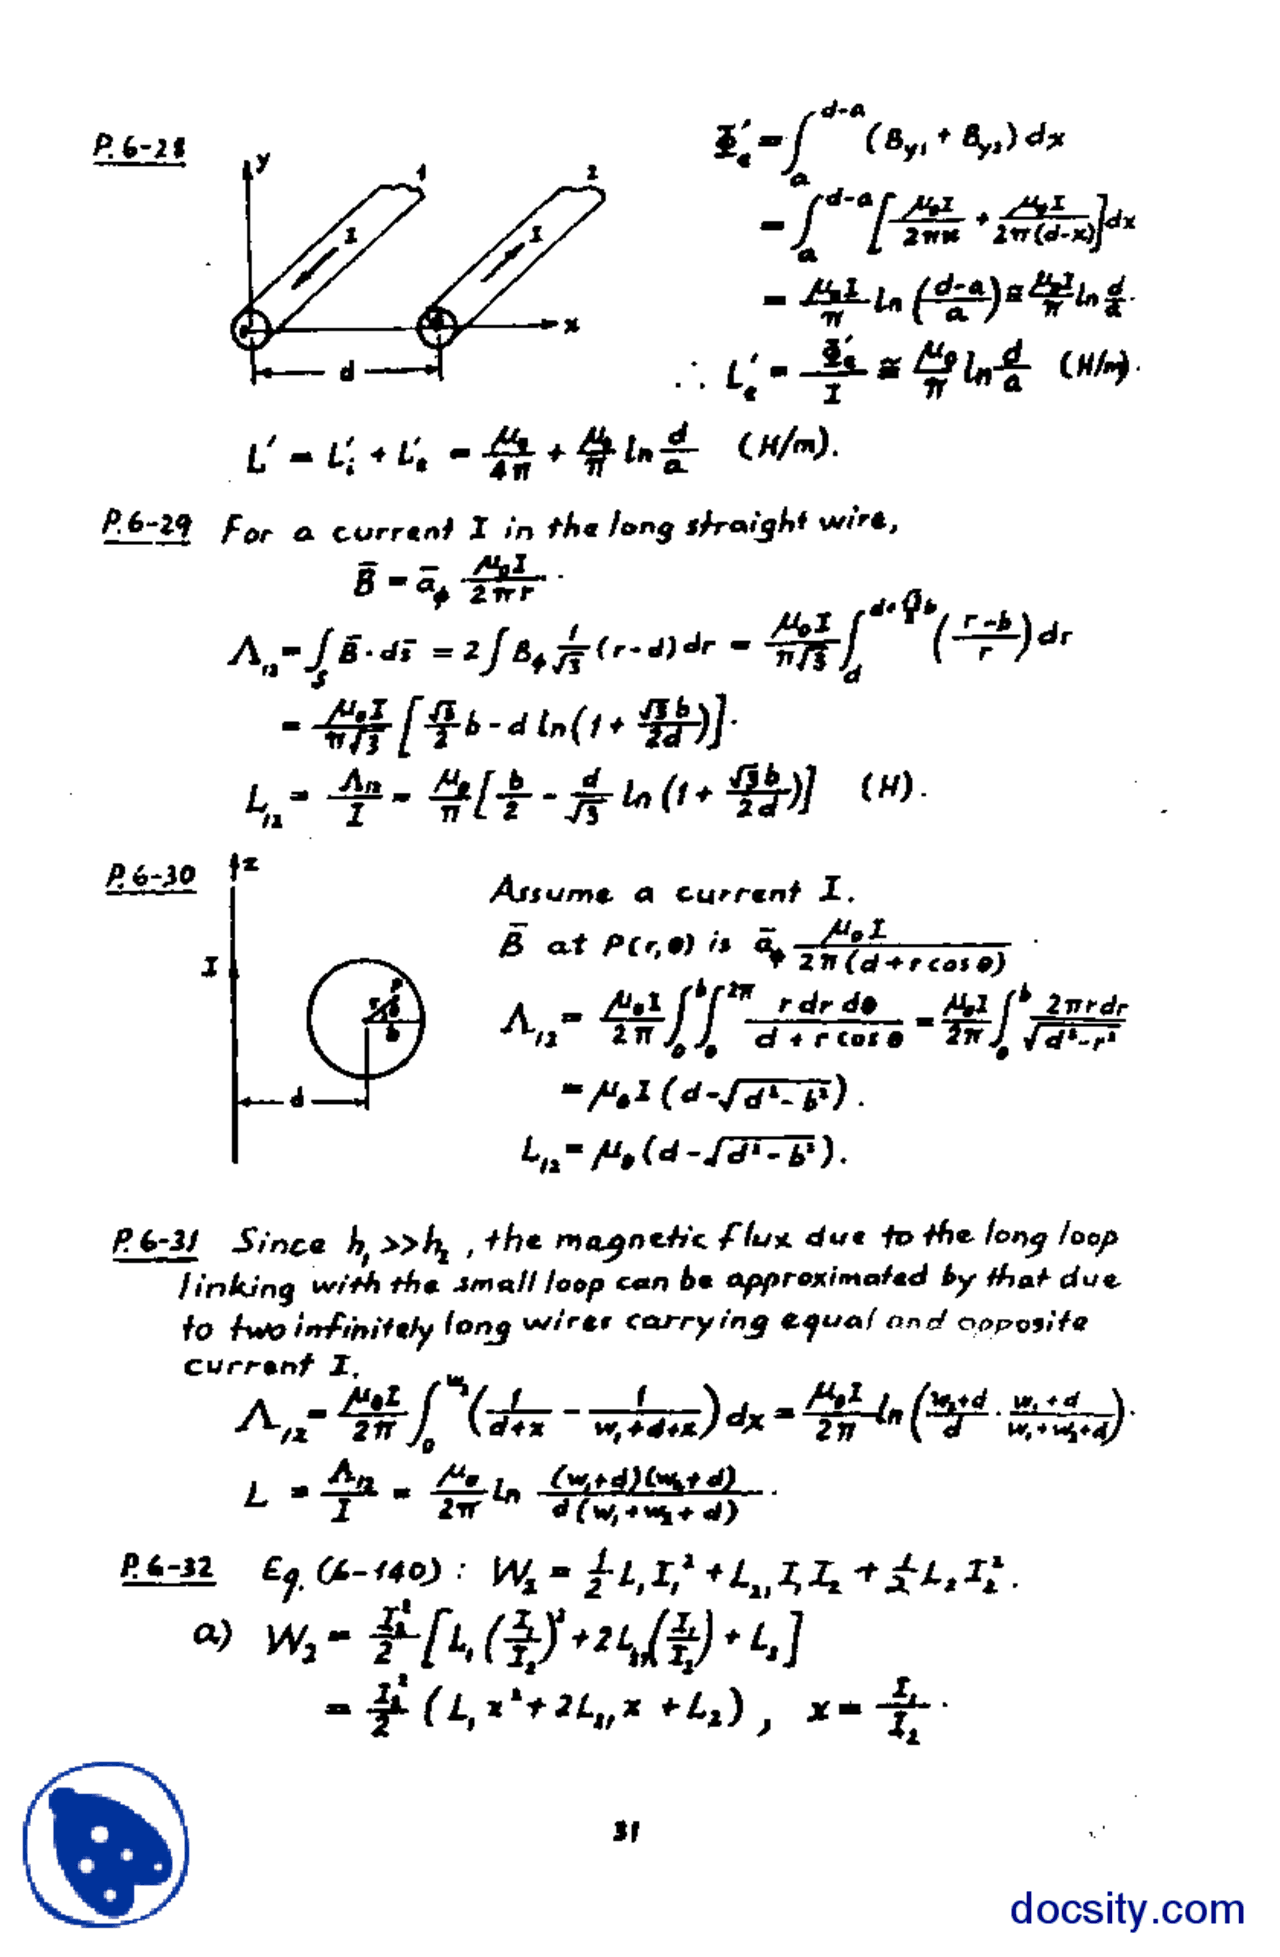 P.6-28
y
1
2
I
I
x
d
Φ'ₑ = ∫ₐ^{d-a} (B_{y1} + B_{y2}) dx
= ∫ₐ^{d-a} [μ₀I/2πx + μ₀I/2π(d-x)] dx
= μ₀I/π ln (d-a/a) ≅ μ₀I/π ln d/a.
∴ L'ₑ = Φ'ₑ/I ≅ μ₀/π ln d/a (H/m).
L' = L'ᵢ + L'ₑ = μ₀/4π + μ₀/π ln d/a (H/m).
P.6-29 For a current I in the long straight wire,
B̄ = ā_ϕ μ₀I/2πr.
Λ₁₂ = ∫_S B̄·ds̄ = 2∫ B_ϕ 1/√3 (r-d) dr = μ₀I/π√3 ∫_d^{d+√3/2 b} (r-b/r) dr
= μ₀I/π√3 [√3/2 b - d ln(1 + √3b/2d)].
L₁₂ = Λ₁₂/I = μ₀/π [b/2 - d/√3 ln(1 + √3b/2d)] (H).
P.6-30
z
I
r P
θ
b
d
Assume a current I.
B̄ at P(r,θ) is ā_ϕ μ₀I/2π(d+r cos θ).
Λ₁₂ = μ₀I/2π ∫₀^b ∫₀^{2π} r dr dθ/d + r cos θ = μ₀I/2π ∫₀^b 2πr dr/√(d²-r²)
= μ₀I (d-√(d²-b²)).
L₁₂ = μ₀ (d-√(d²-b²)).
P.6-31 Since h₁ >> h₂, the magnetic flux due to the long loop
linking with the small loop can be approximated by that due
to two infinitely long wires carrying equal and opposite
current I.
Λ₁₂ = μ₀I/2π ∫₀^{w₂} (1/d+x - 1/w₁+d+x) dx = μ₀I/2π ln (w₂+d/d · w₁+d/w₁+w₂+d).
L = Λ₁₂/I = μ₀/2π ln (w₁+d)(w₂+d)/d(w₁+w₂+d).
P.6-32 Eq. (6-140): W₂ = 1/2 L₁I₁² + L₂₁I₁I₂ + 1/2 L₂I₂².
a) W₂ = I₂²/2 [L₁(I₁/I₂)² + 2L₂₁(I₁/I₂) + L₂]
= I₂²/2 (L₁x² + 2L₂₁x + L₂), x = I₁/I₂.
31
docsity.com